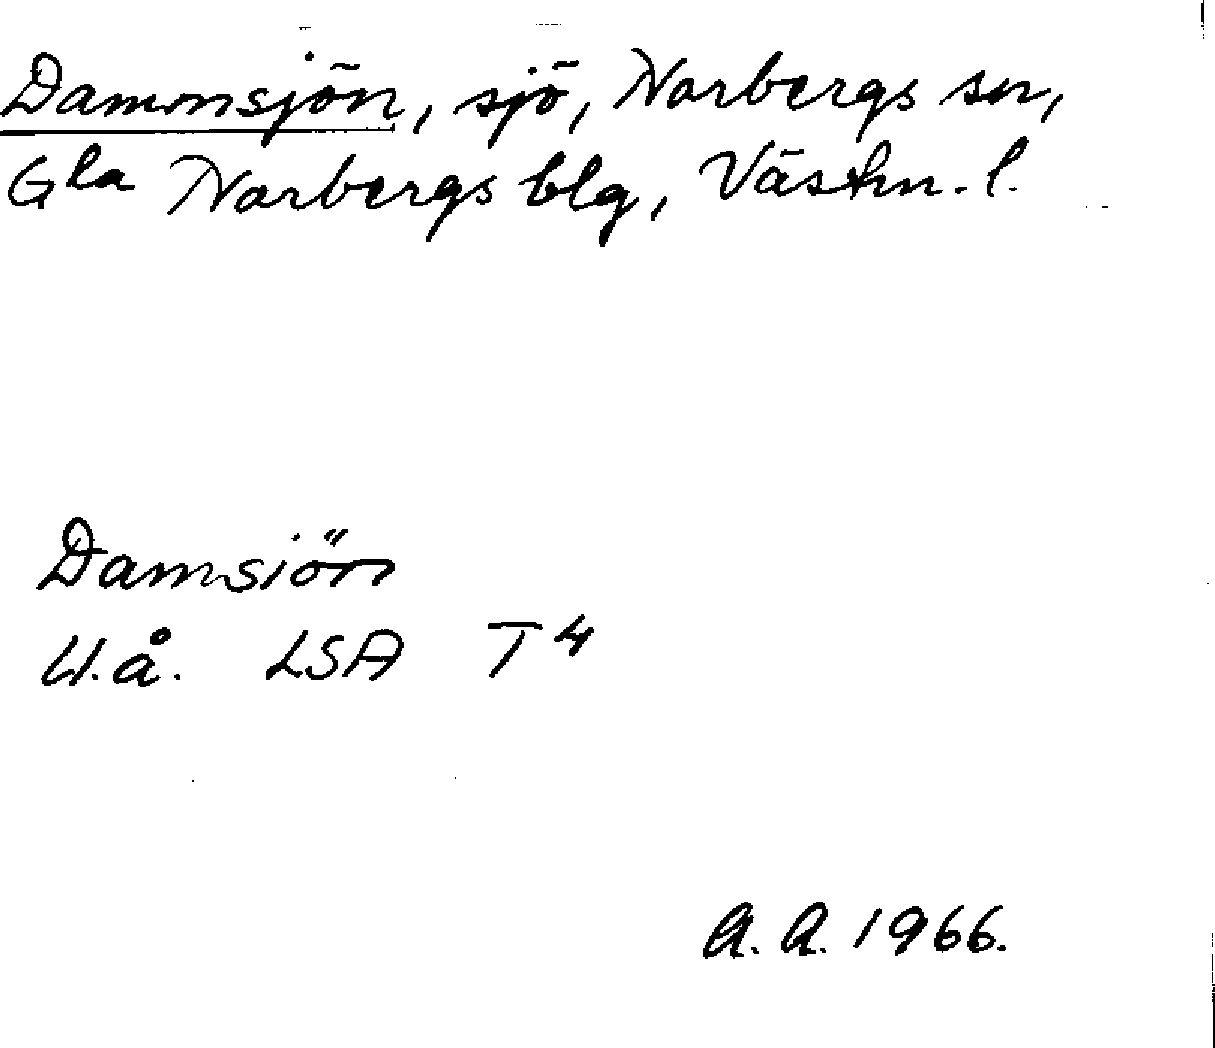 Dammsjön, sjö, Norbergs sn,
Gla Norbergs blg, Västm. l.
Damsiön
U.å. LSA T 4
A.A. 1966.